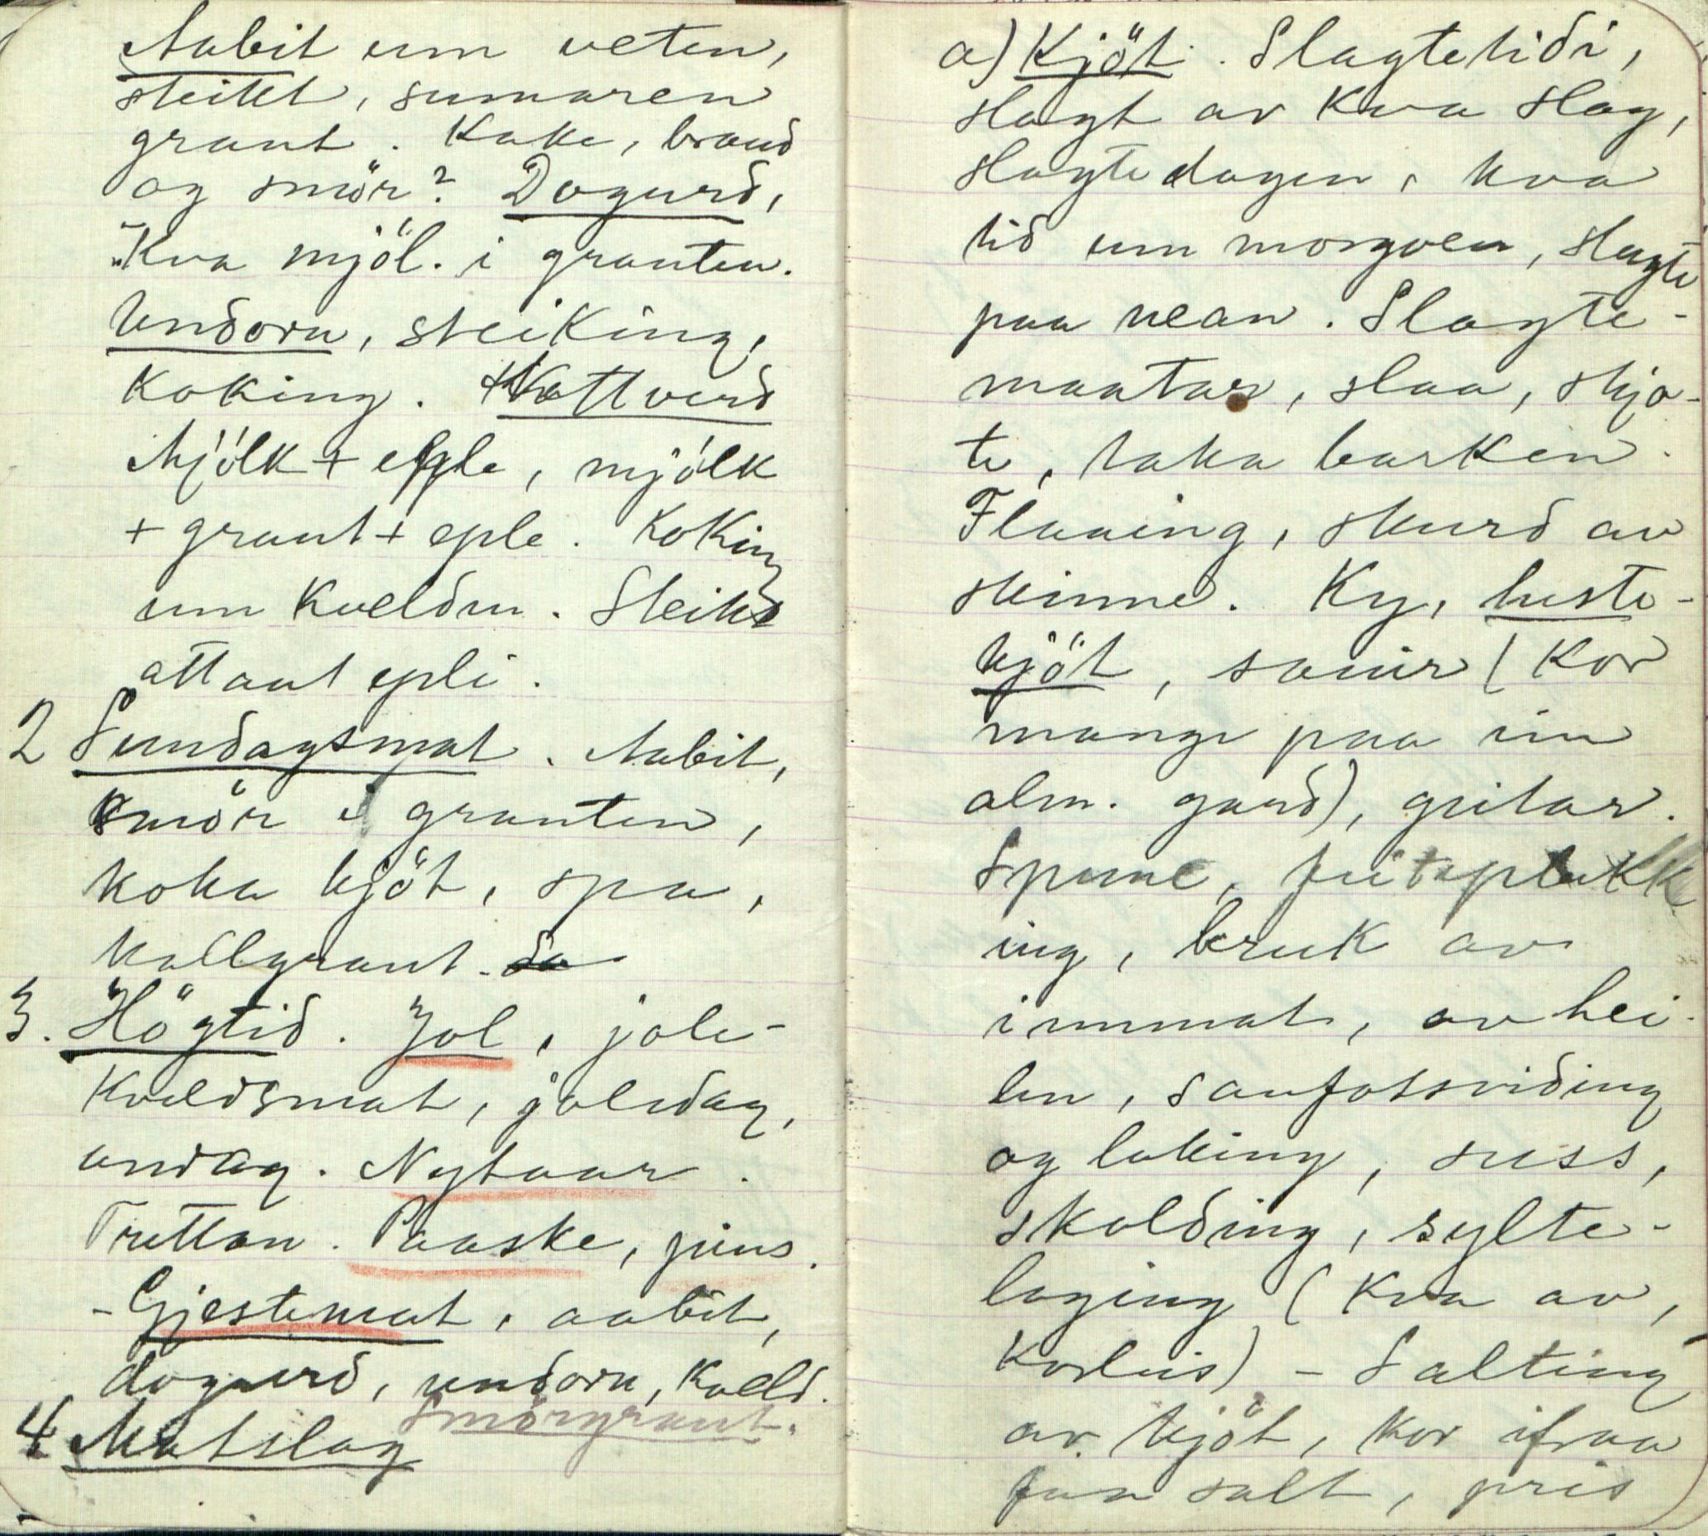 Aabit um veten,
steikt, sumaren
graut. Kake, braud
og smör? Dogurd,
Kva mjöl. i grauten.
Undorn, steiking,
Koking. Nattverd
Mjölk + eple, mjölk
+ graut + eple. Koking
um Kvelden. Steikt
attant epli.
2 Sundagsmat. Aabit,
smör i grauten,
koka kjöt, spa,
kallgraut.
3. Högtid. Jol, jole-
Kveldsmat, joledag,
andag. Nytaar.
Trettan. Paaske, pins.
- Gjestemat, aabit,
dogurd, undorn, Kveld.
Smörgraut.
4 Matslag
a) Kjöt. Slagtetidi,
slagt av Kva slag,
slagtedagen, kva
tid um morgoen, slagte
paa nean. Slagte-
maatar, slaa, skjo-
te, taka barken.
Flaaing, skurd av
skinne. Ky, huste-
kjöt, sauir (Kor
mange paa ein
alm. gard), geitar.
Spune, feitaplukk
ing, bruk av
innmat, av hei-
len, saufotsviding
og laking, suss,
skolding, sylte-
laging (Kva av,
Korleis) - Salting
av kjöt, Kor ifraa
fær salt, pris